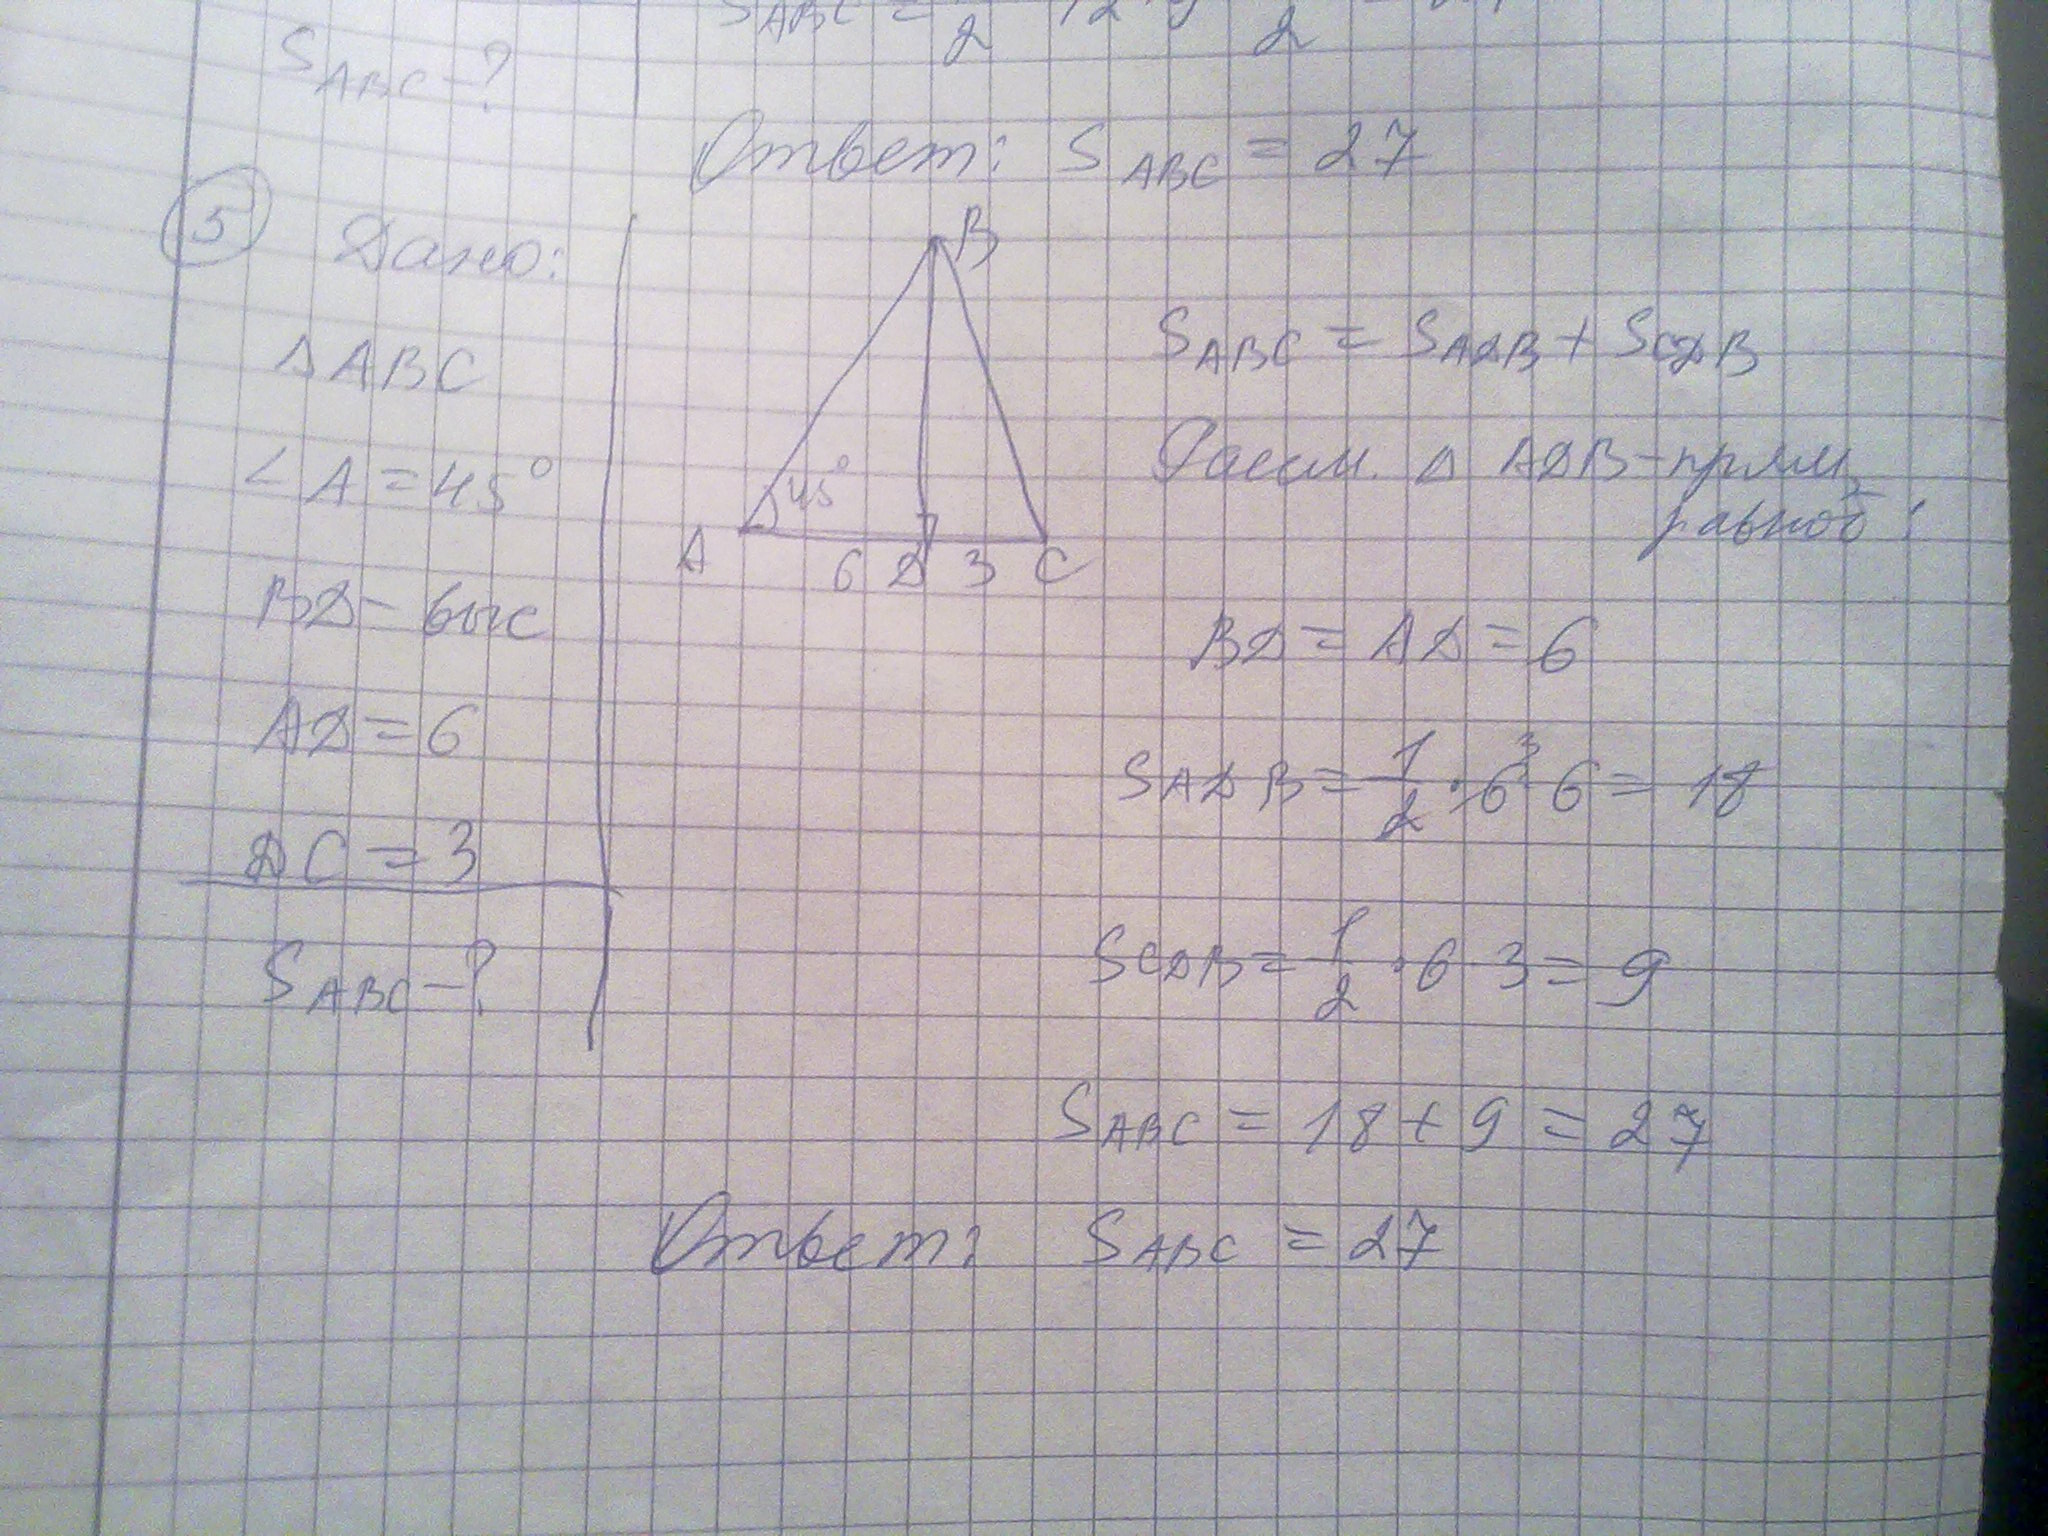 S ABC - ?
Ответ: S ABC = 27
5 Дано:
Δ ABC
∠ A = 45°
BD - выс
AD = 6
DC = 3
S ABC - ?
B
45°
A 6 D 3 C
S ABC = S ADB + S CDB
Рассм. Δ ADB - прям,
равноб:
BD = AD = 6
S ADB = 1/2 · 6 3 6 = 18
S CDB = 1/2 · 6 3 = 9
S ABC = 18 + 9 = 27
Ответ: S ABC = 27